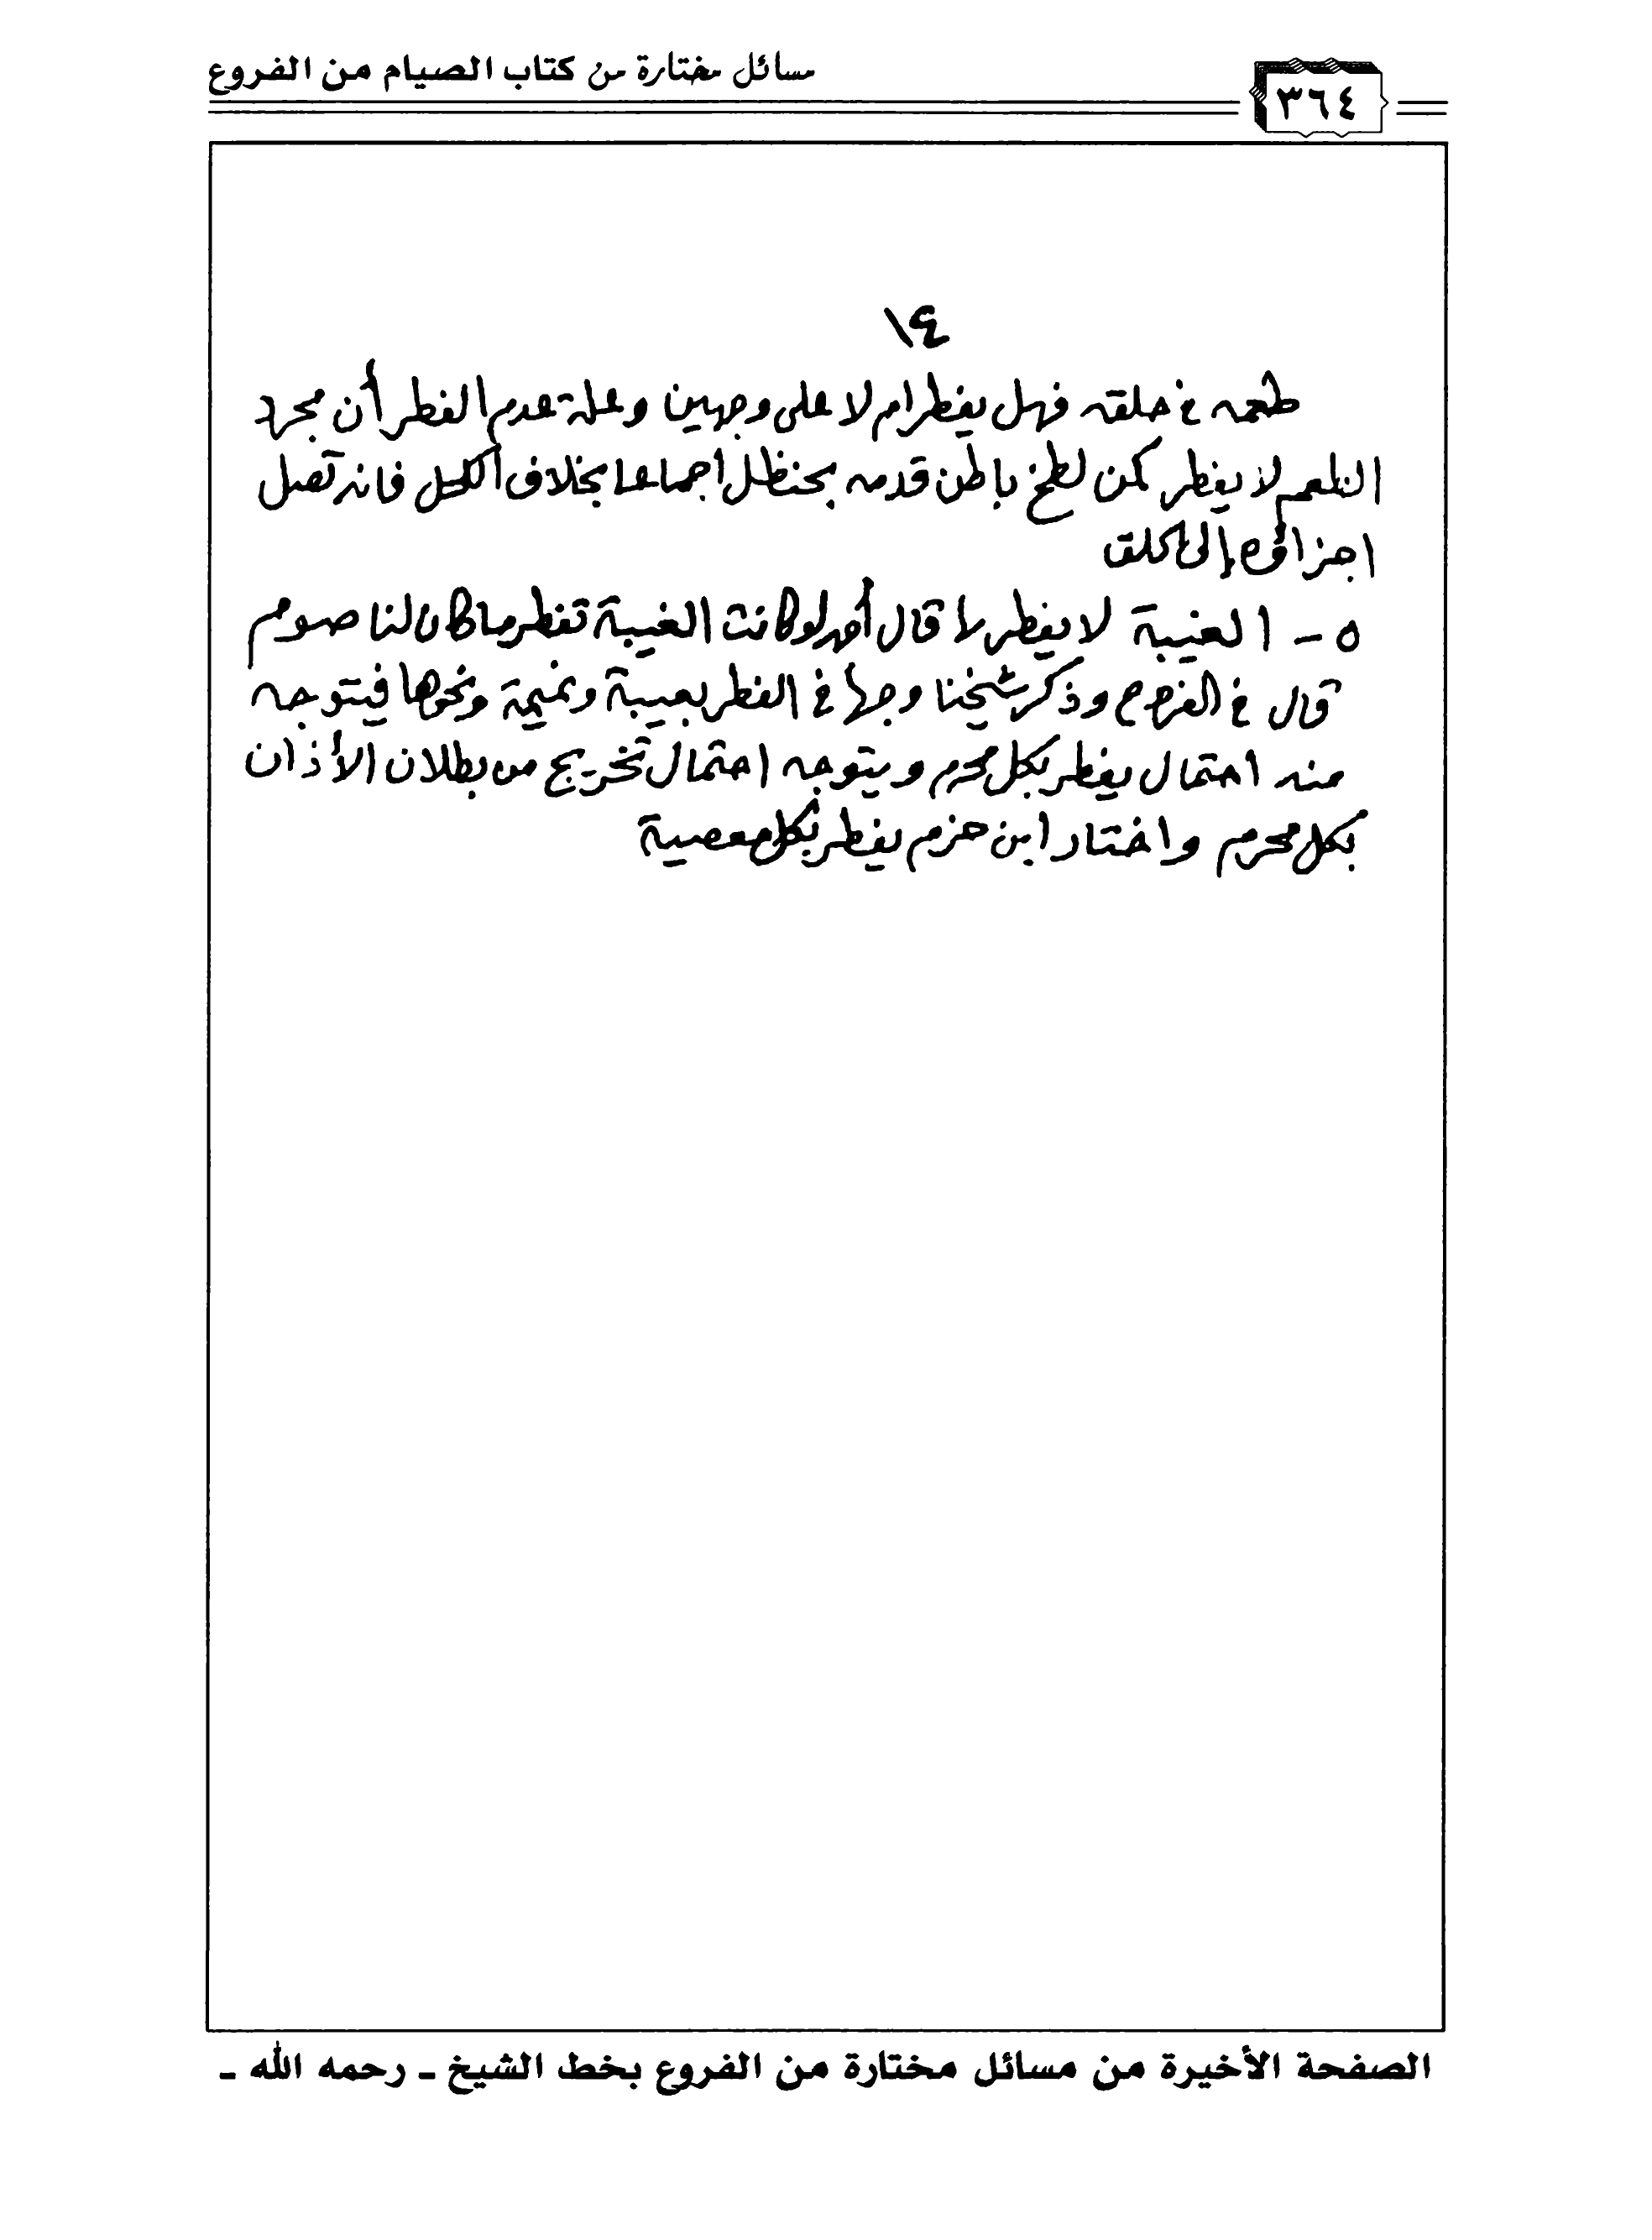 مسائل مختارة من كتاب الصيام من الفروع
٣٦٤
١٤
طعمه في حلقه فهل يفطر ام لا على وجهين وعلة عدم الفطر أن مجرد
الطعم لا يفطر كمن لطخ باطن قدمه بحنظل اجماعا بخلاف الكحل فانه تصل
اجزاؤه إلى الحلق
٥ - الغيبة لا يفطر بها قال أحمد لو كانت الغيبة تفطر ما كان لنا صوم
قال في الفروع وذكر شيخنا وجها في الفطر بغيبة ونميمة ونحوها فيتوجه
منه احتمال يفطر بكل محرم ويتوجه احتمال تخريج من بطلان الأذان
بكل محرم واختار ابن حزم يفطر بكل معصية
الصفحة الأخيرة من مسائل مختارة من الفروع بخط الشيخ ـ رحمه الله ـ